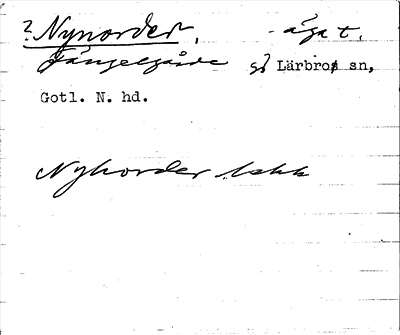 ? Nynorder, - äga t.
Fängelgårde gd Lärbro sn,
Gotl. N. hd.
Nyhorder